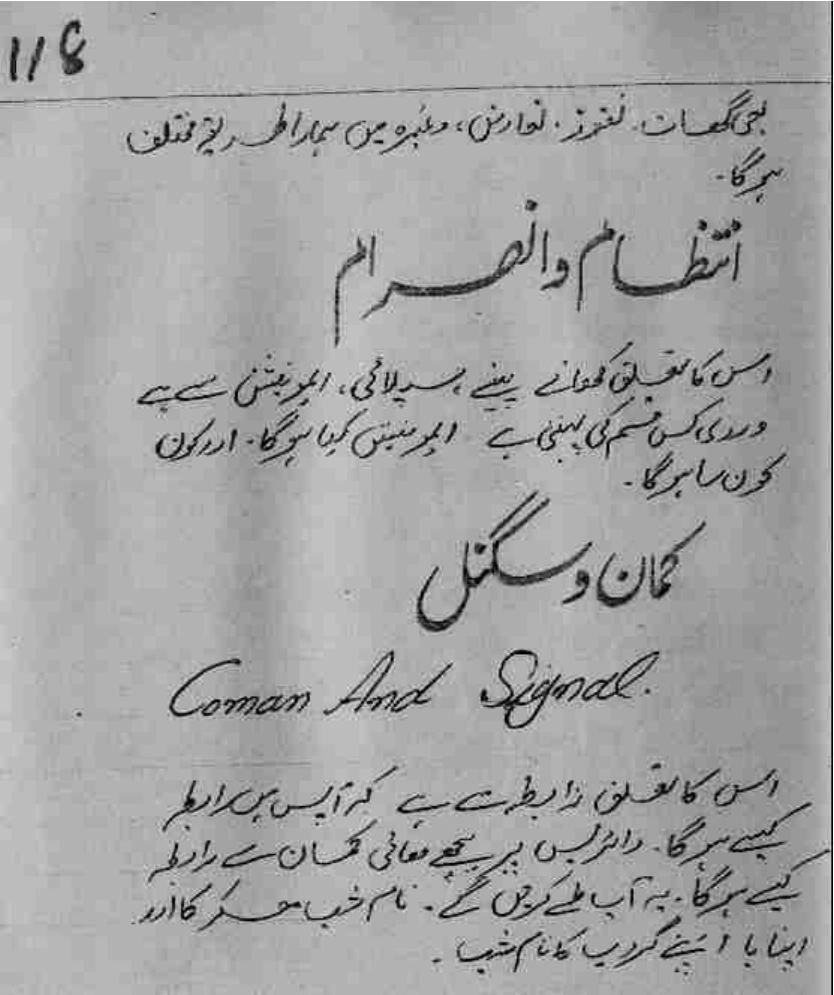 118
یعنی گھات. نفوذ. تعارض، وغیرہ میں ہمارا طریقہ مختلف
ہوگا۔
انتظام وانصرام
اس کا تعلق کھانے پینے، سپلائی، ایمونیشن سے ہے
وردی کس قسم کی پہننی ہے ایمونیشن کیا ہوگا۔ اور کون
کون سا ہوگا۔
کمان و سگنل
Coman And Signal.
اس کا تعلق رابطہ سے ہے کہ آپس میں رابطہ
کیسے ہوگا۔ وائرلیس پر پیچھے کمان سے رابطہ
کیسے ہوگا۔ یہ آپ طے کریں گے۔ نام شب معسکر کا اور
اپنا یا اپنے گروپ کا نام شب۔